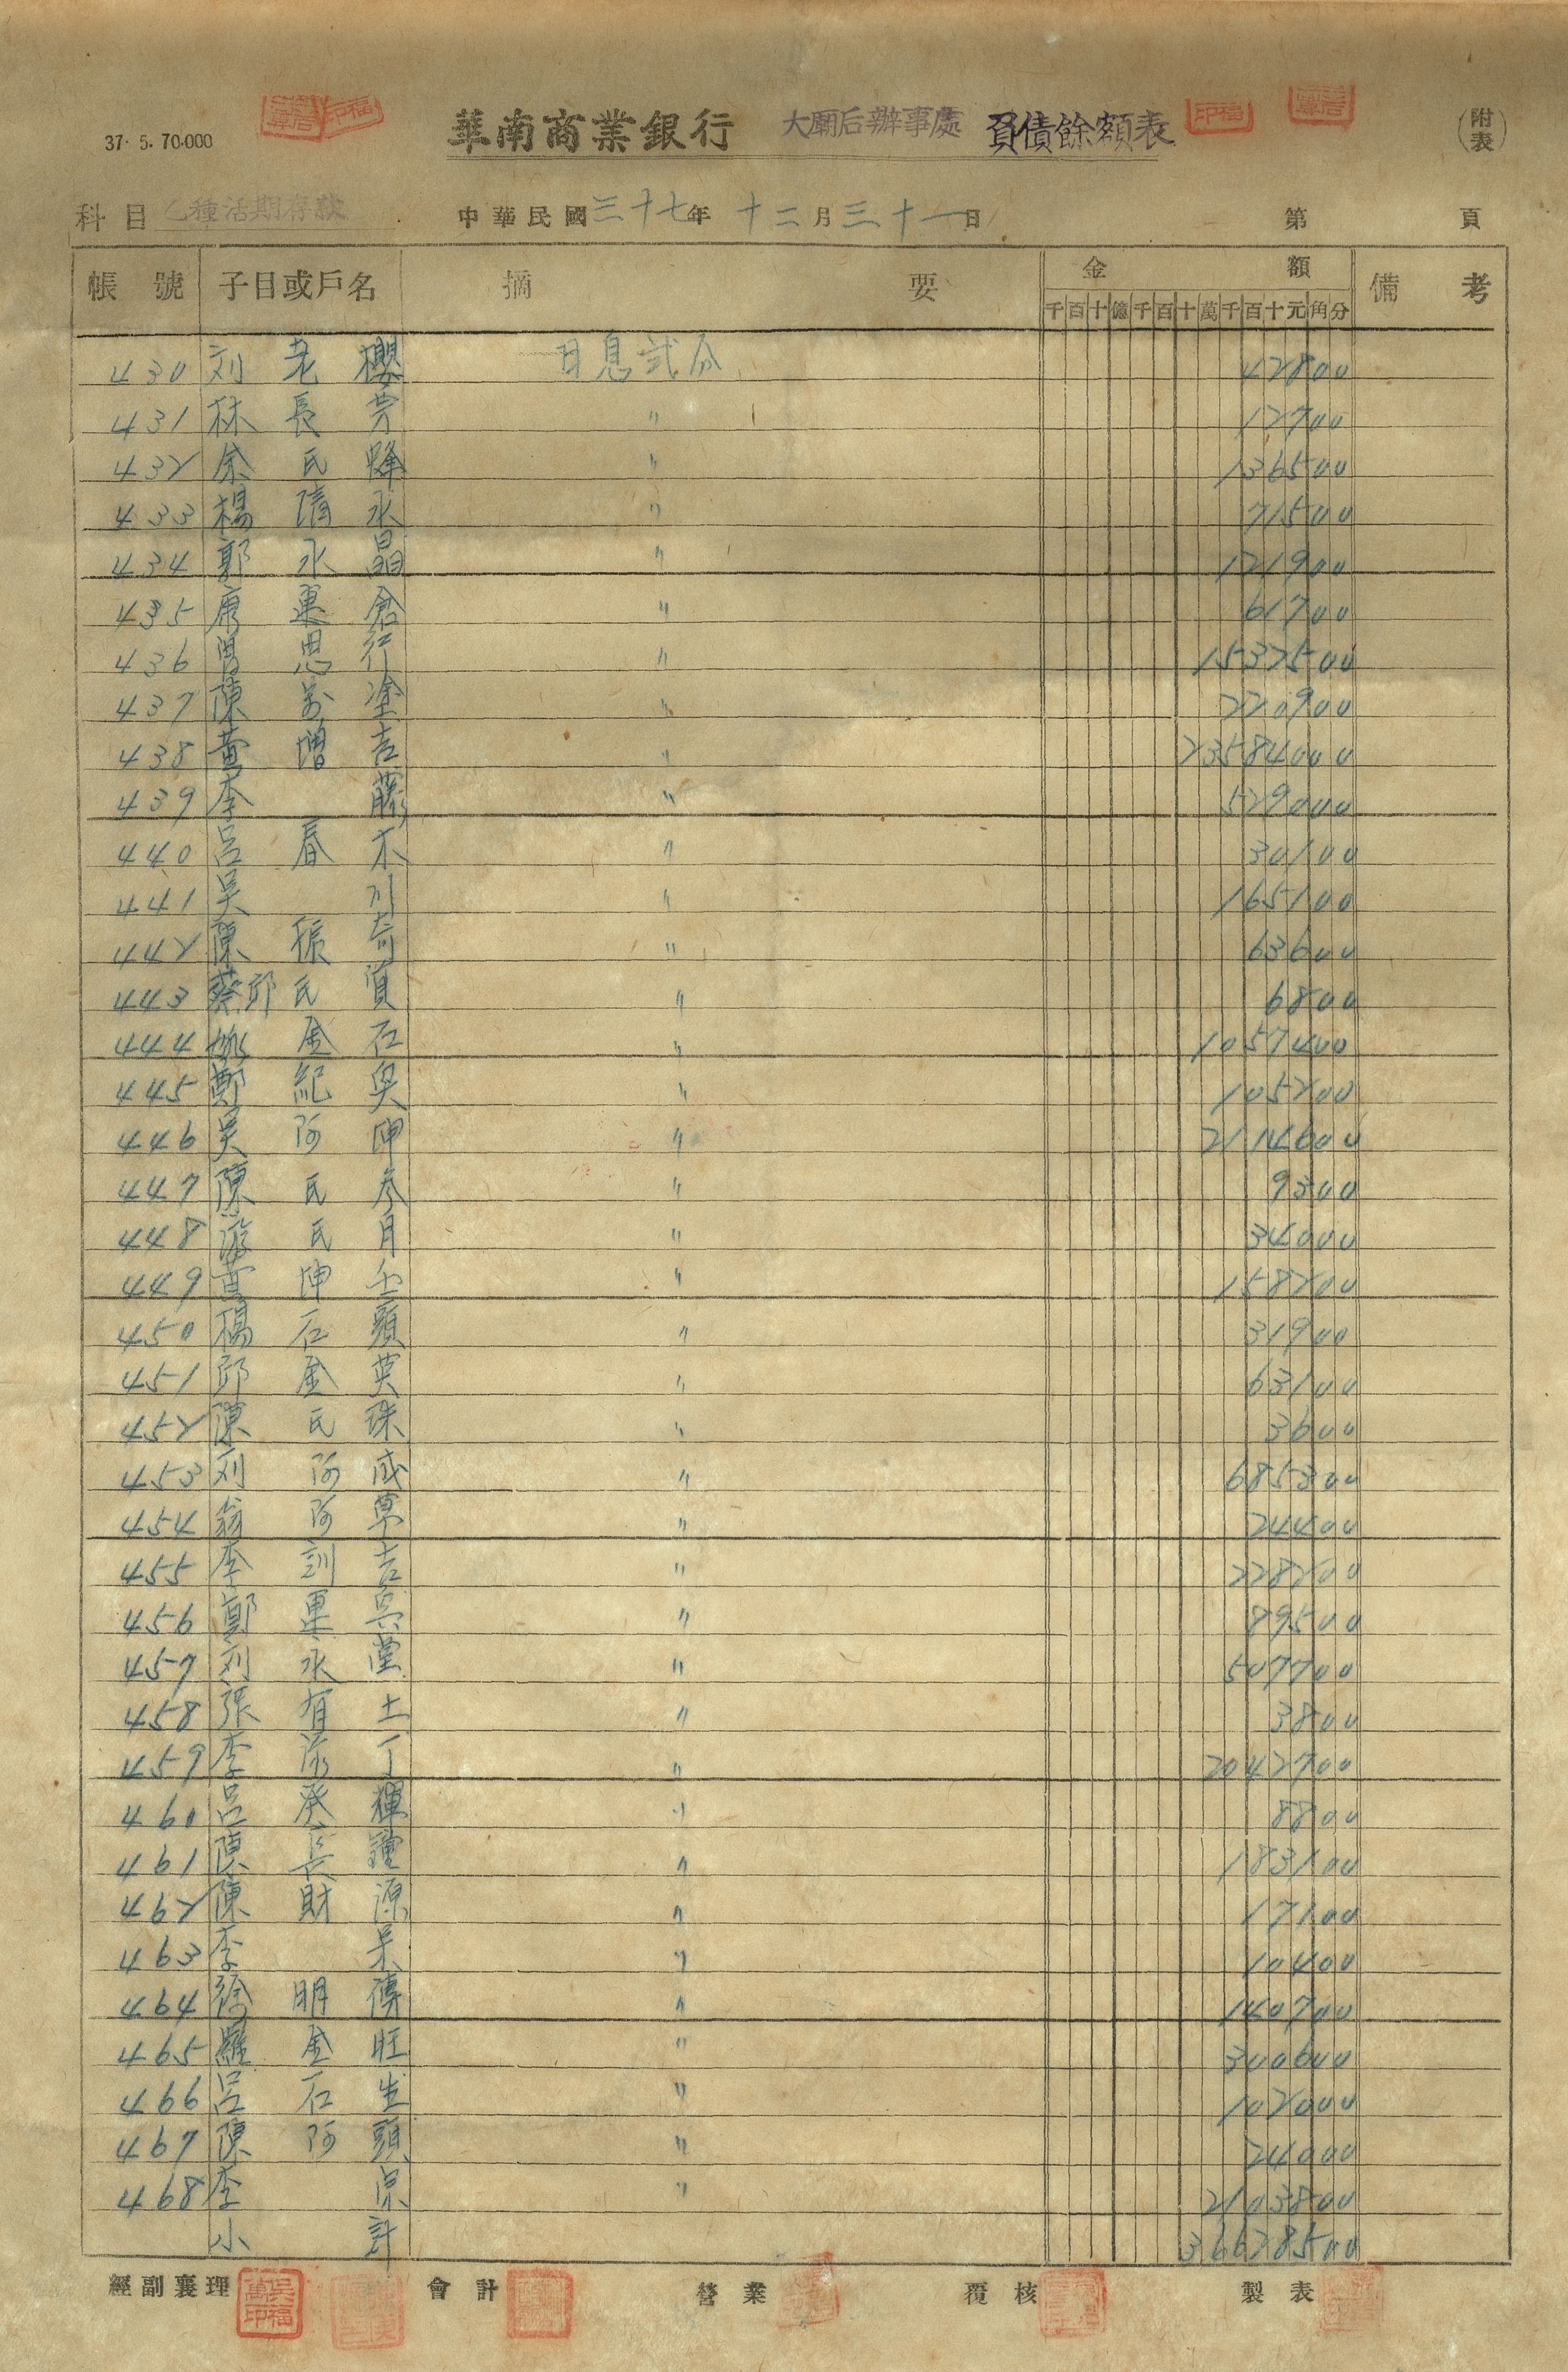 37. 5. 70.000
華南商業銀行 大廟后辦事處 負債餘額表 (附表)
科目 乙種活期存款 中華民國三十七年十二月三十一日 第 頁
帳號 子目或戶名 摘要 金額 備考
千百十億千百十萬千百十元角分
430 刘老櫻 日息弍分 42800
431 林長 〃 12700
432 余氏 〃 136500
433 楊清永 〃 71500
434 郭永晶 〃 121900
435 唐 倉 〃 61700
436 思行 〃 1532500
437 陳 塗 〃 220900
438 黃增吉 〃 23584000
439 李藤 〃 529000
440 呂春木 〃 30100
441 吳川 〃 165100
442 陳振奇 〃 63600
443 蔡邱氏 〃 6800
444 姚金石 〃 1057400
445 鄭紀 〃 105200
446 吳阿呻 〃 2114600
447 陳氏參 〃 9300
448 游氏月 〃 34000
449 黃坤 〃 158200
450 楊石頭 〃 31900
451 邱金英 〃 63100
452 陳氏珠 〃 3600
453 刘阿成 〃 685300
454 翁阿草 〃 24400
455 李訓吉 〃 228200
456 鄭 〃 89500
457 刘永堂 〃 507700
458 張有土 〃 3800
459 李添丁 〃 2042700
460 呂癸輝 〃 8800
461 陳長鐘 〃 183100
462 陳財源 〃 17100
463 李 〃 10400
464 徐明傳 〃 140700
465 羅金旺 〃 300600
466 呂石生 〃 102000
467 陳阿頭 〃 24000
468 李 〃 2103800
小計 36628500
經副襄理 會計 營業 覆核 製表